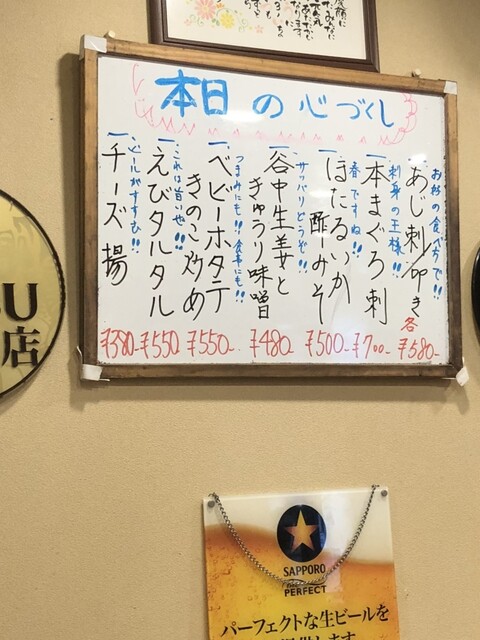 本日の心づくし
お好の食べ方で!!
一、あじ刺/叩き 各 ¥580-
刺身の王様!!
一、本まぐろ刺 ¥700-
春ですね!!
一、ほたるいか
酢みそ ¥500-
サッパリどうぞ!!
一、谷中生姜と
きゅうり味噌 ¥480-
つまみにも!! 食事にも!!
一、ベビーホタテ
きのこ炒め ¥550-
これは旨いぜ!!
一、えびタルタル ¥550
ビールがすすむ!!
一、チーズ揚 ¥380-
U
店
SAPPORO
PERFECT
パーフェクトな生ビールを